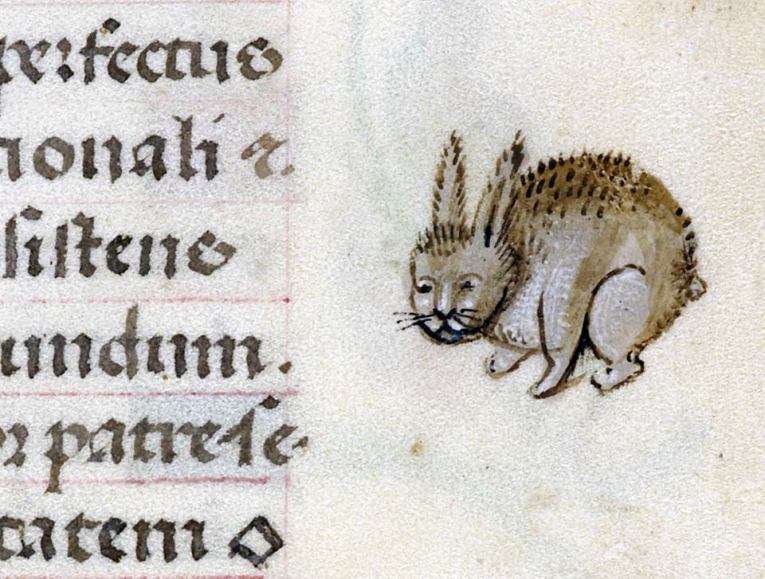 perfectus
ionali ⁊.
sistens
undum.
or patre se-
tatem o